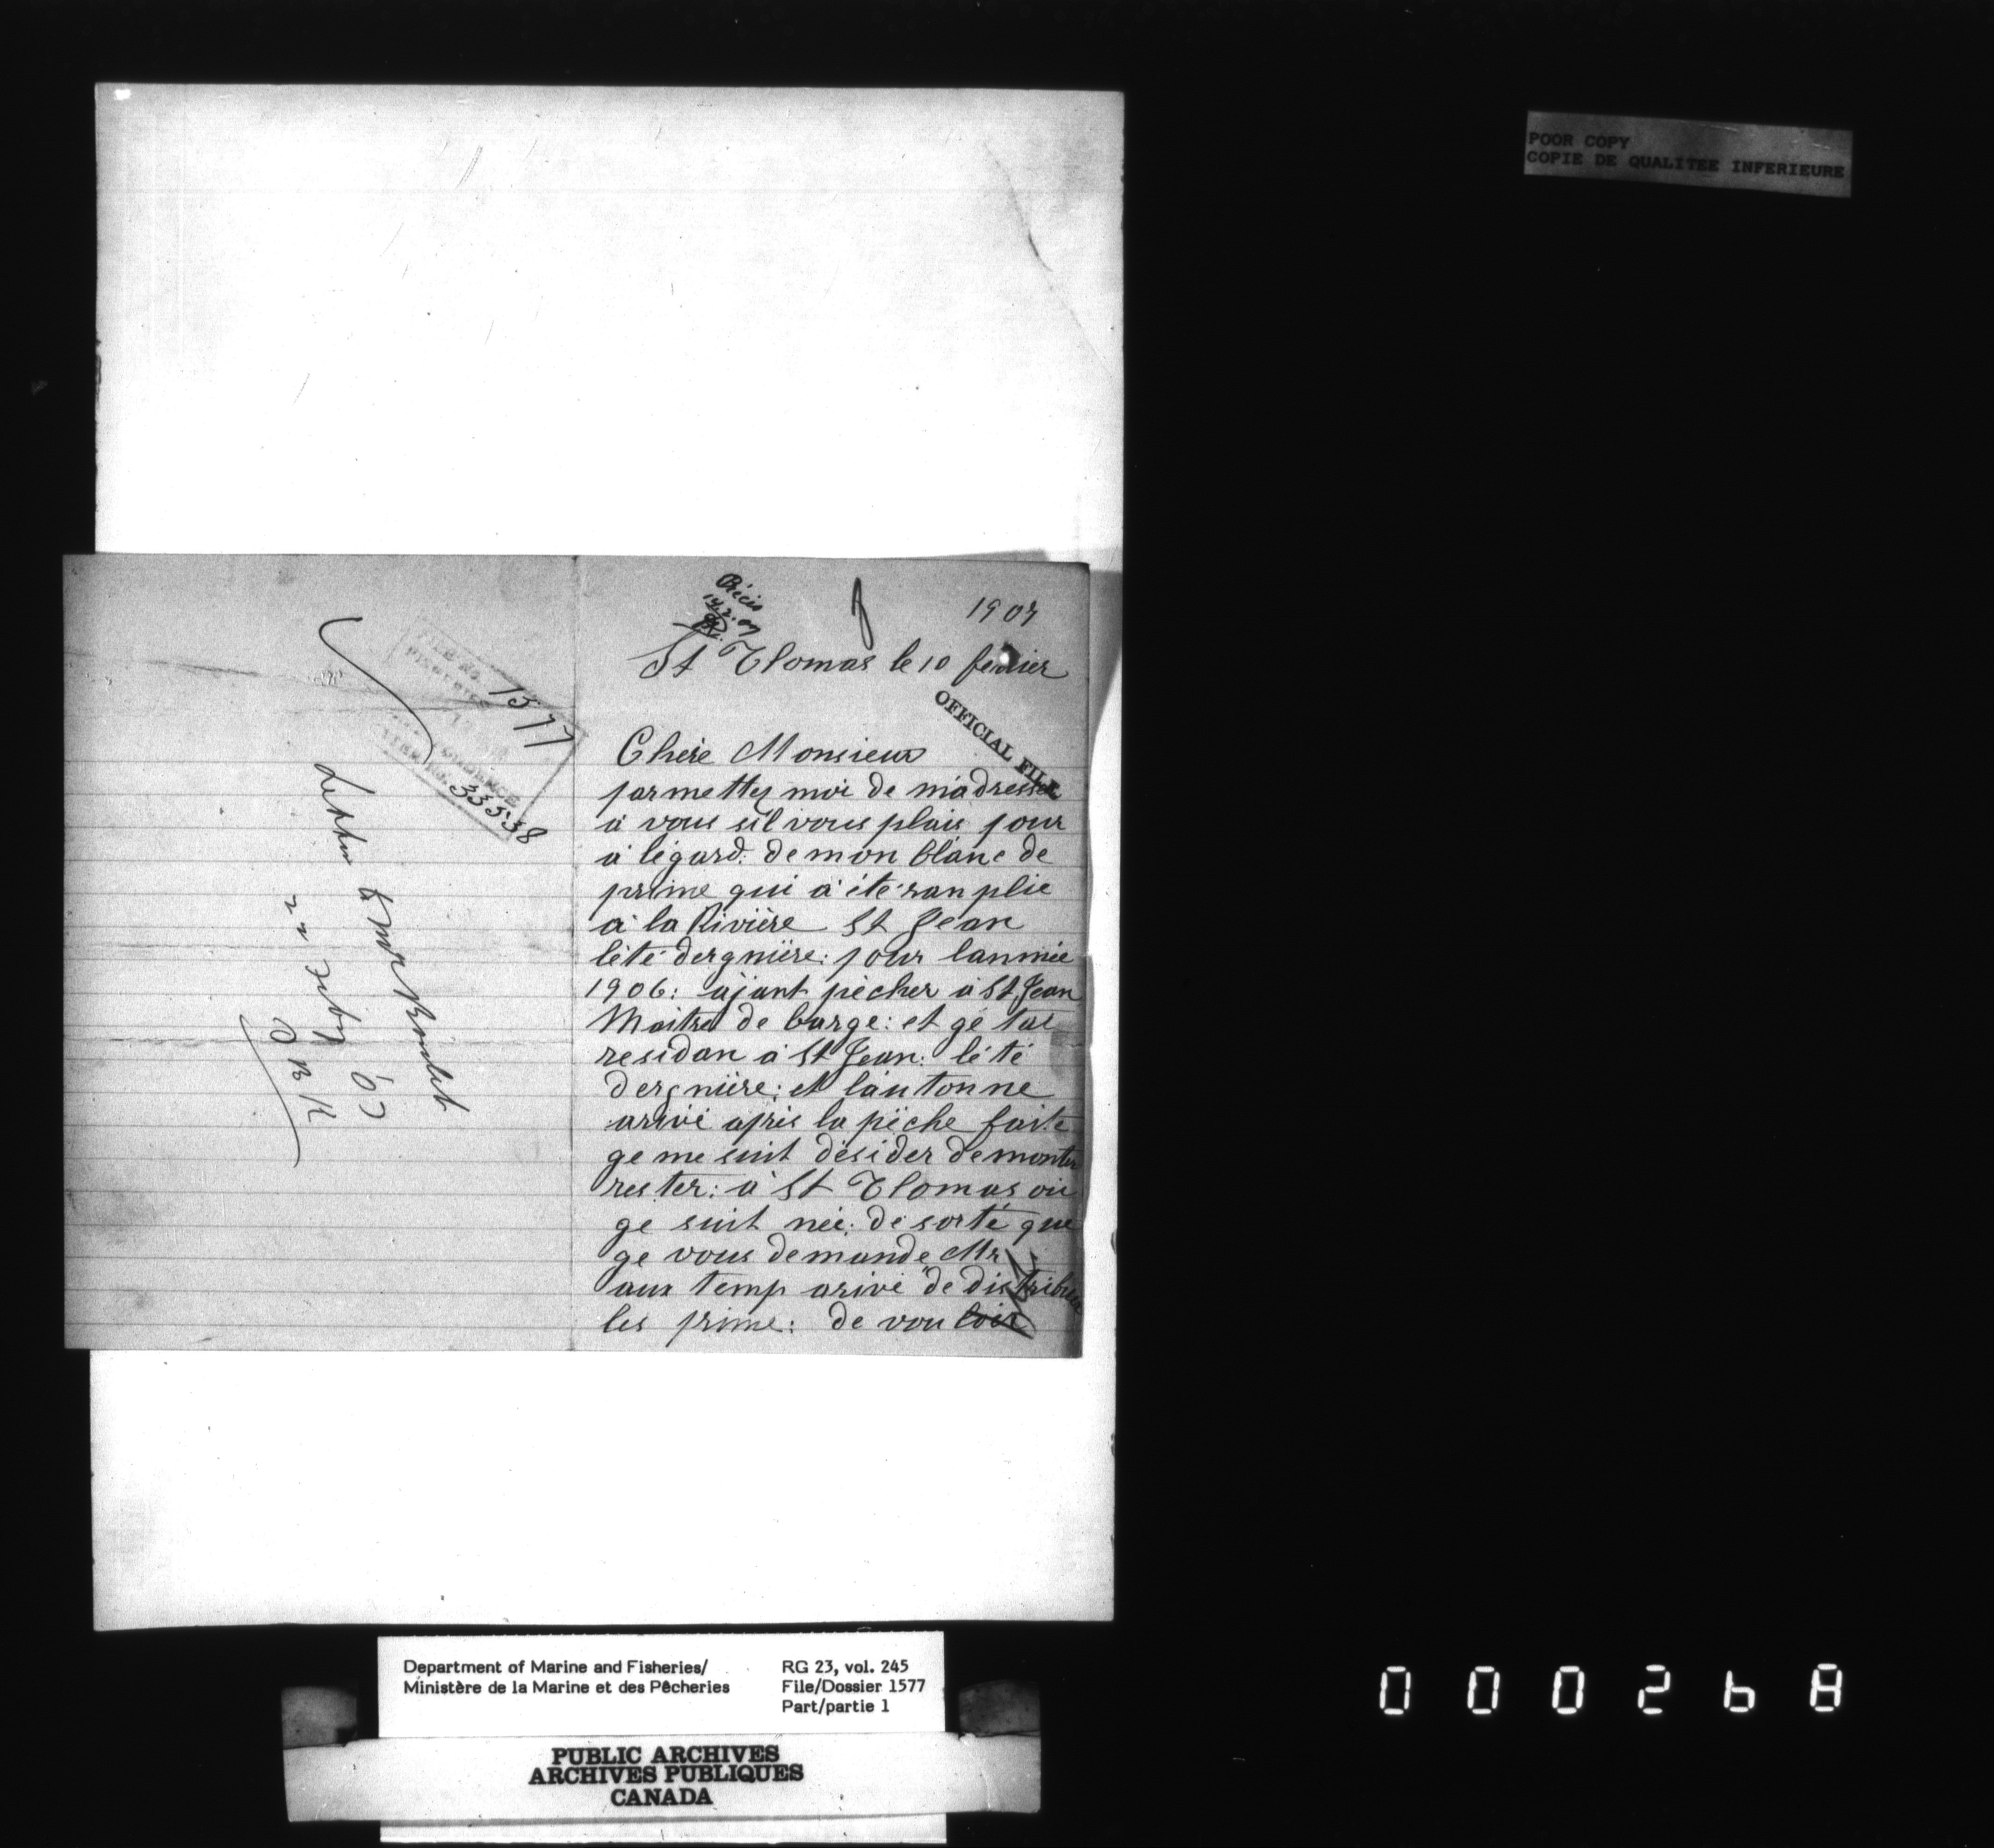 POOR COPY
COPIE DE QUALITEE INFERIEURE
Précis
14.2.07
1907
St Thomas le 10 fevrier
OFFICIAL FILE
Chère Monsieur
parmettez moi de m'adresser
a vous sil vous plais pour
a légard: de mon blanc de
prime qui a été ranplie
a la Rivière St Jean
lété dergnière: pour lannnée
1906: ajant pècher a St Jean
Maitre de barge: et gé tai
residan a St Jean: lété
dergnière: et lautonne
arivé après la pèche faite
ge me suit désider de monter
rester: a St Thomas ou
ge suit née: de sorte que
ge vous demande Mr
aux temp arivé de distribuer
les prime: de vouloir
FILE NO.
FISHERIES
1577
33538
Letter
22 Feby
Department of Marine and Fisheries/
Ministère de la Marine et des Pêcheries
RG 23, vol. 245
File/Dossier 1577
Part/partie 1
PUBLIC ARCHIVES
ARCHIVES PUBLIQUES
CANADA
000268